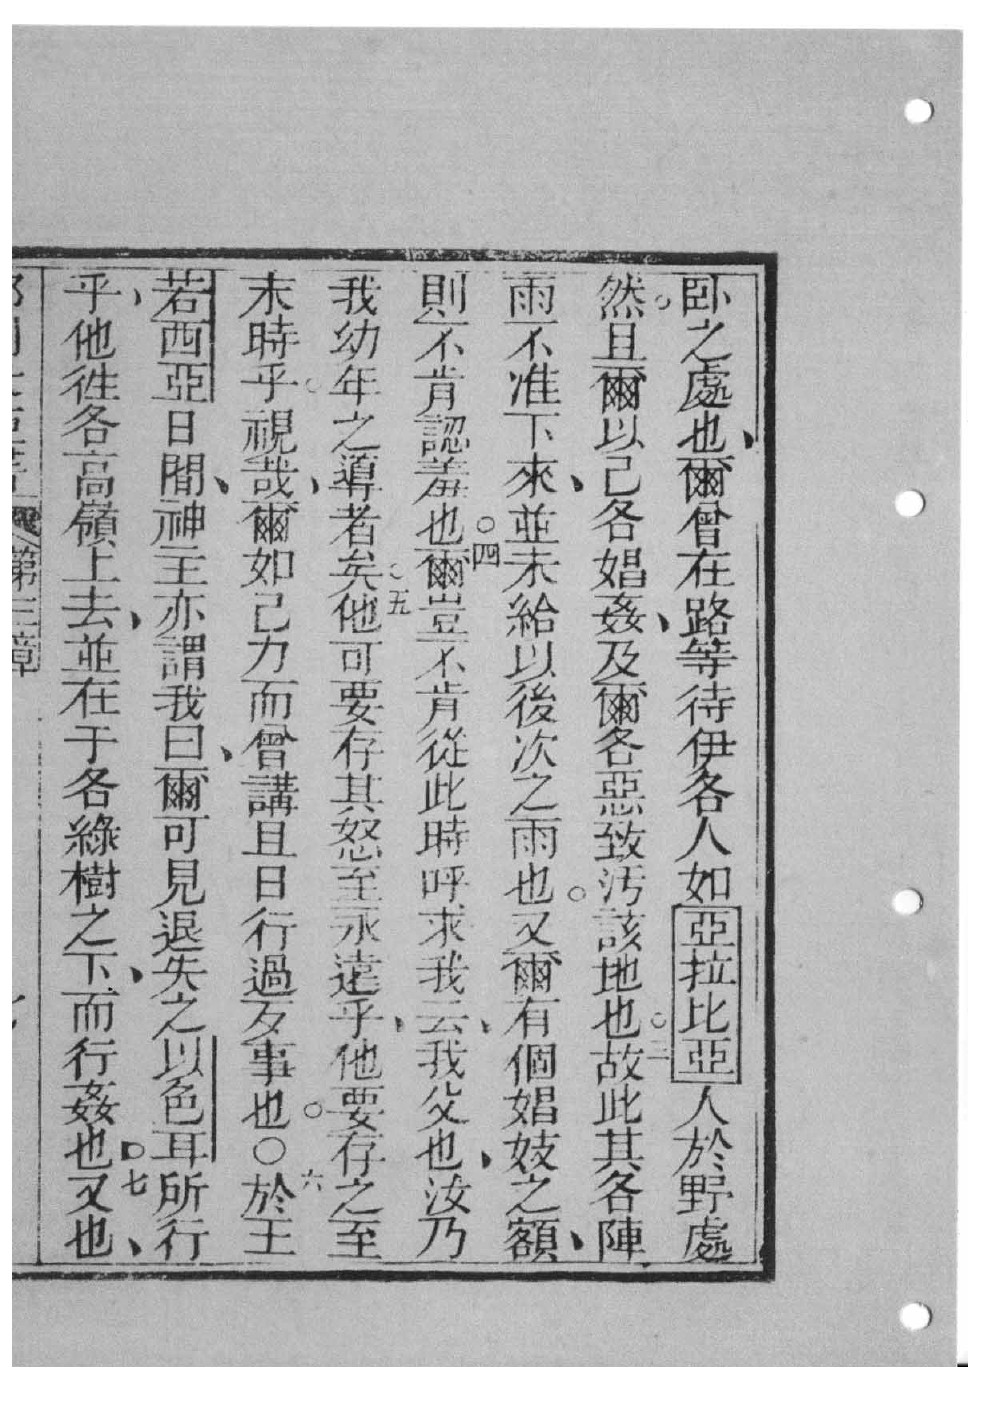 卧之處也、爾曾在路等待伊各人如亞拉比亞人於野處
然。且爾以己各娼姦、及爾各惡致汚該地也。三故此其各陣
雨不准下來、並未給以後次之雨也。又爾有個娼妓之額、
則不肯認羞也。四爾豈不肯從此時呼求我云、我父也、汝乃
我幼年之導者矣。五他可要存其怒至永遠乎、他要存之至
末時乎。視哉、爾如己力而曾講且日行過歹事也。○六於王
若西亞日間、神主亦謂我曰、爾可見退失之以色耳所行
乎、他徃各高嶺上去、並在于各綠樹之下、而行姦也。七又也、
第三章